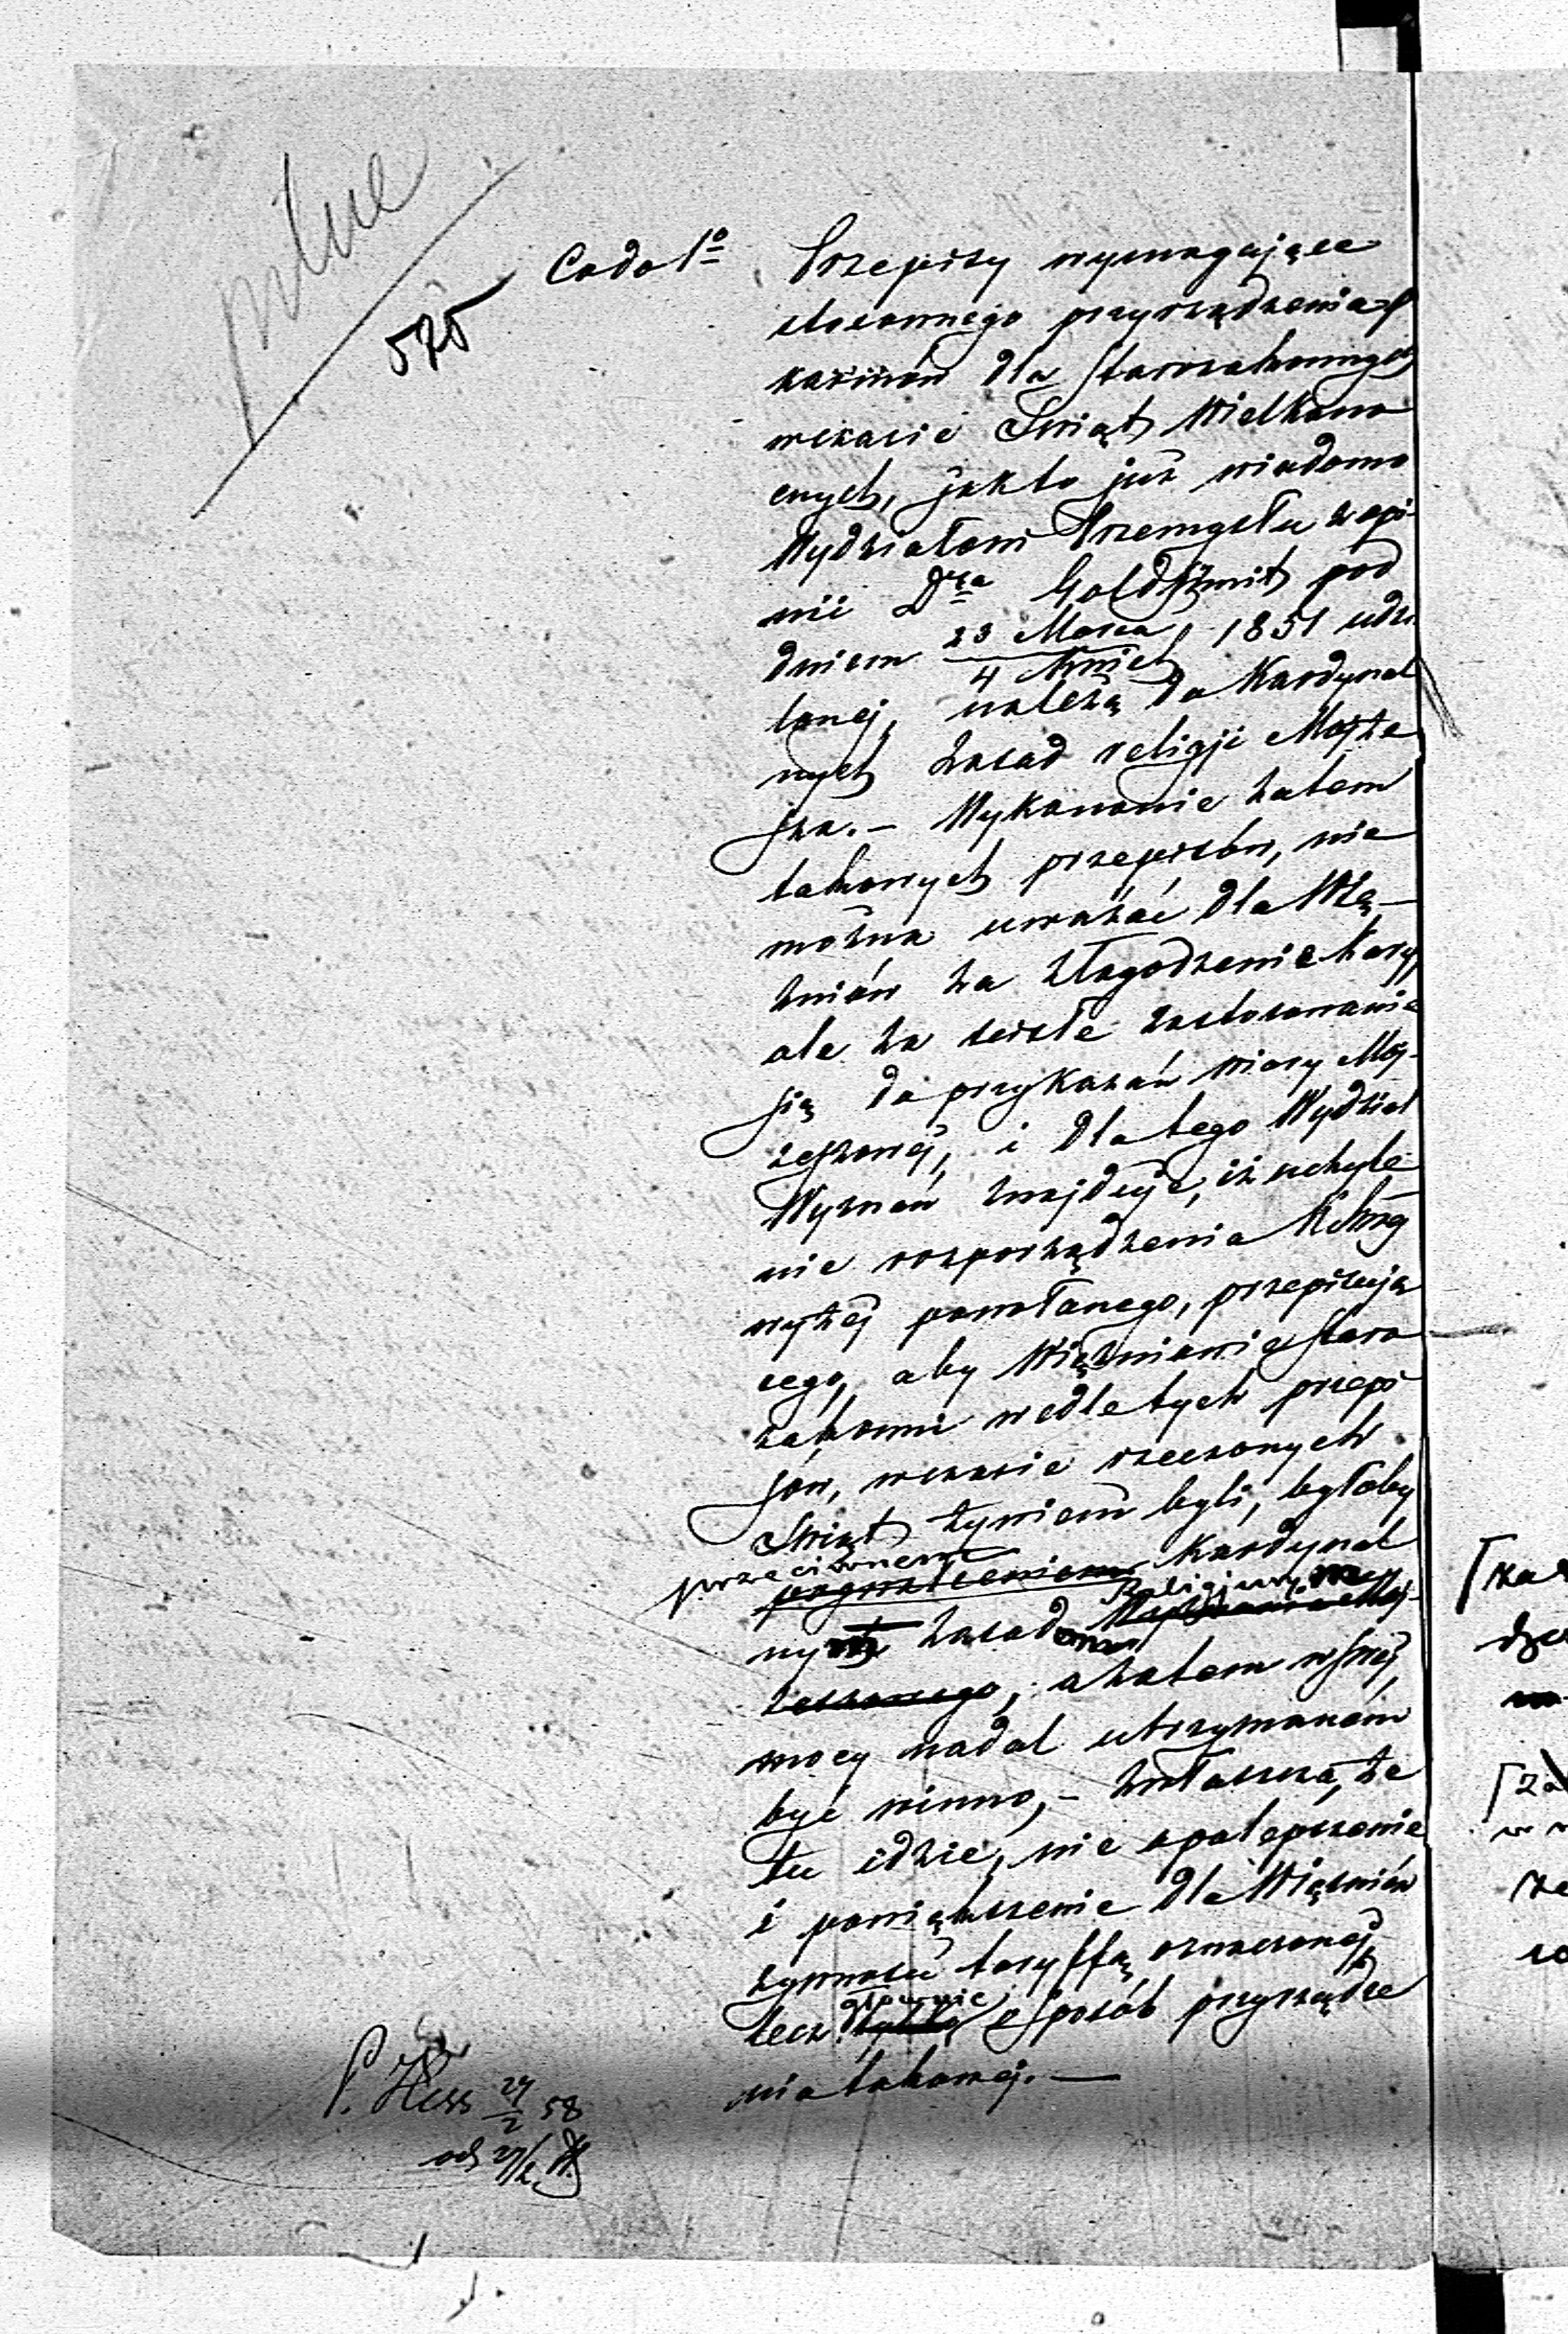 525
Co do 1º Przepisy wymagające
stosownego przyrządzenia p
karmów dla starozakonnych
wczasie Świąt Wielkano
cnych, jak to już wiadomo
Wydziałowi Przemysłu z opi
nii Dra Goldszmit pod
dniem 23 Marca / 4 Kwiet 1851 udzi
lonej, należą do Kardynal
nych zasad religji Mojże
sza. – Wykonanie zatem
takowych przepisów, nie
można uważać dla Wię–
źniów za złagodzenie kary
ale za ścisłe zastosowanie
się do przykazań wiary Moj-
żeszowej, i dla tego Wydział
Wyznań znajduje, iż uchyle
nie rozporządzenia
wyżej powołanego, przepisują
cego, aby Więźniowie staro
zakonni wedle tych przepi
sów, wczasie rzeczonych
Świąt żywieni byli, byłoby
przeciwnem Kardynal
nym zasadom Religijnym
żeszowego, a zatem w swej
mocy nadal utrzymanem
być winno, – zwłaszcza, że
tu idzie, nie o polepszenie
i powiększenie dla Więźniów
żywności taryffą oznaczonej
lecz głównie o sposób przyrządze
nia takowej. —
P. Hess 24/2 58
od 27/2